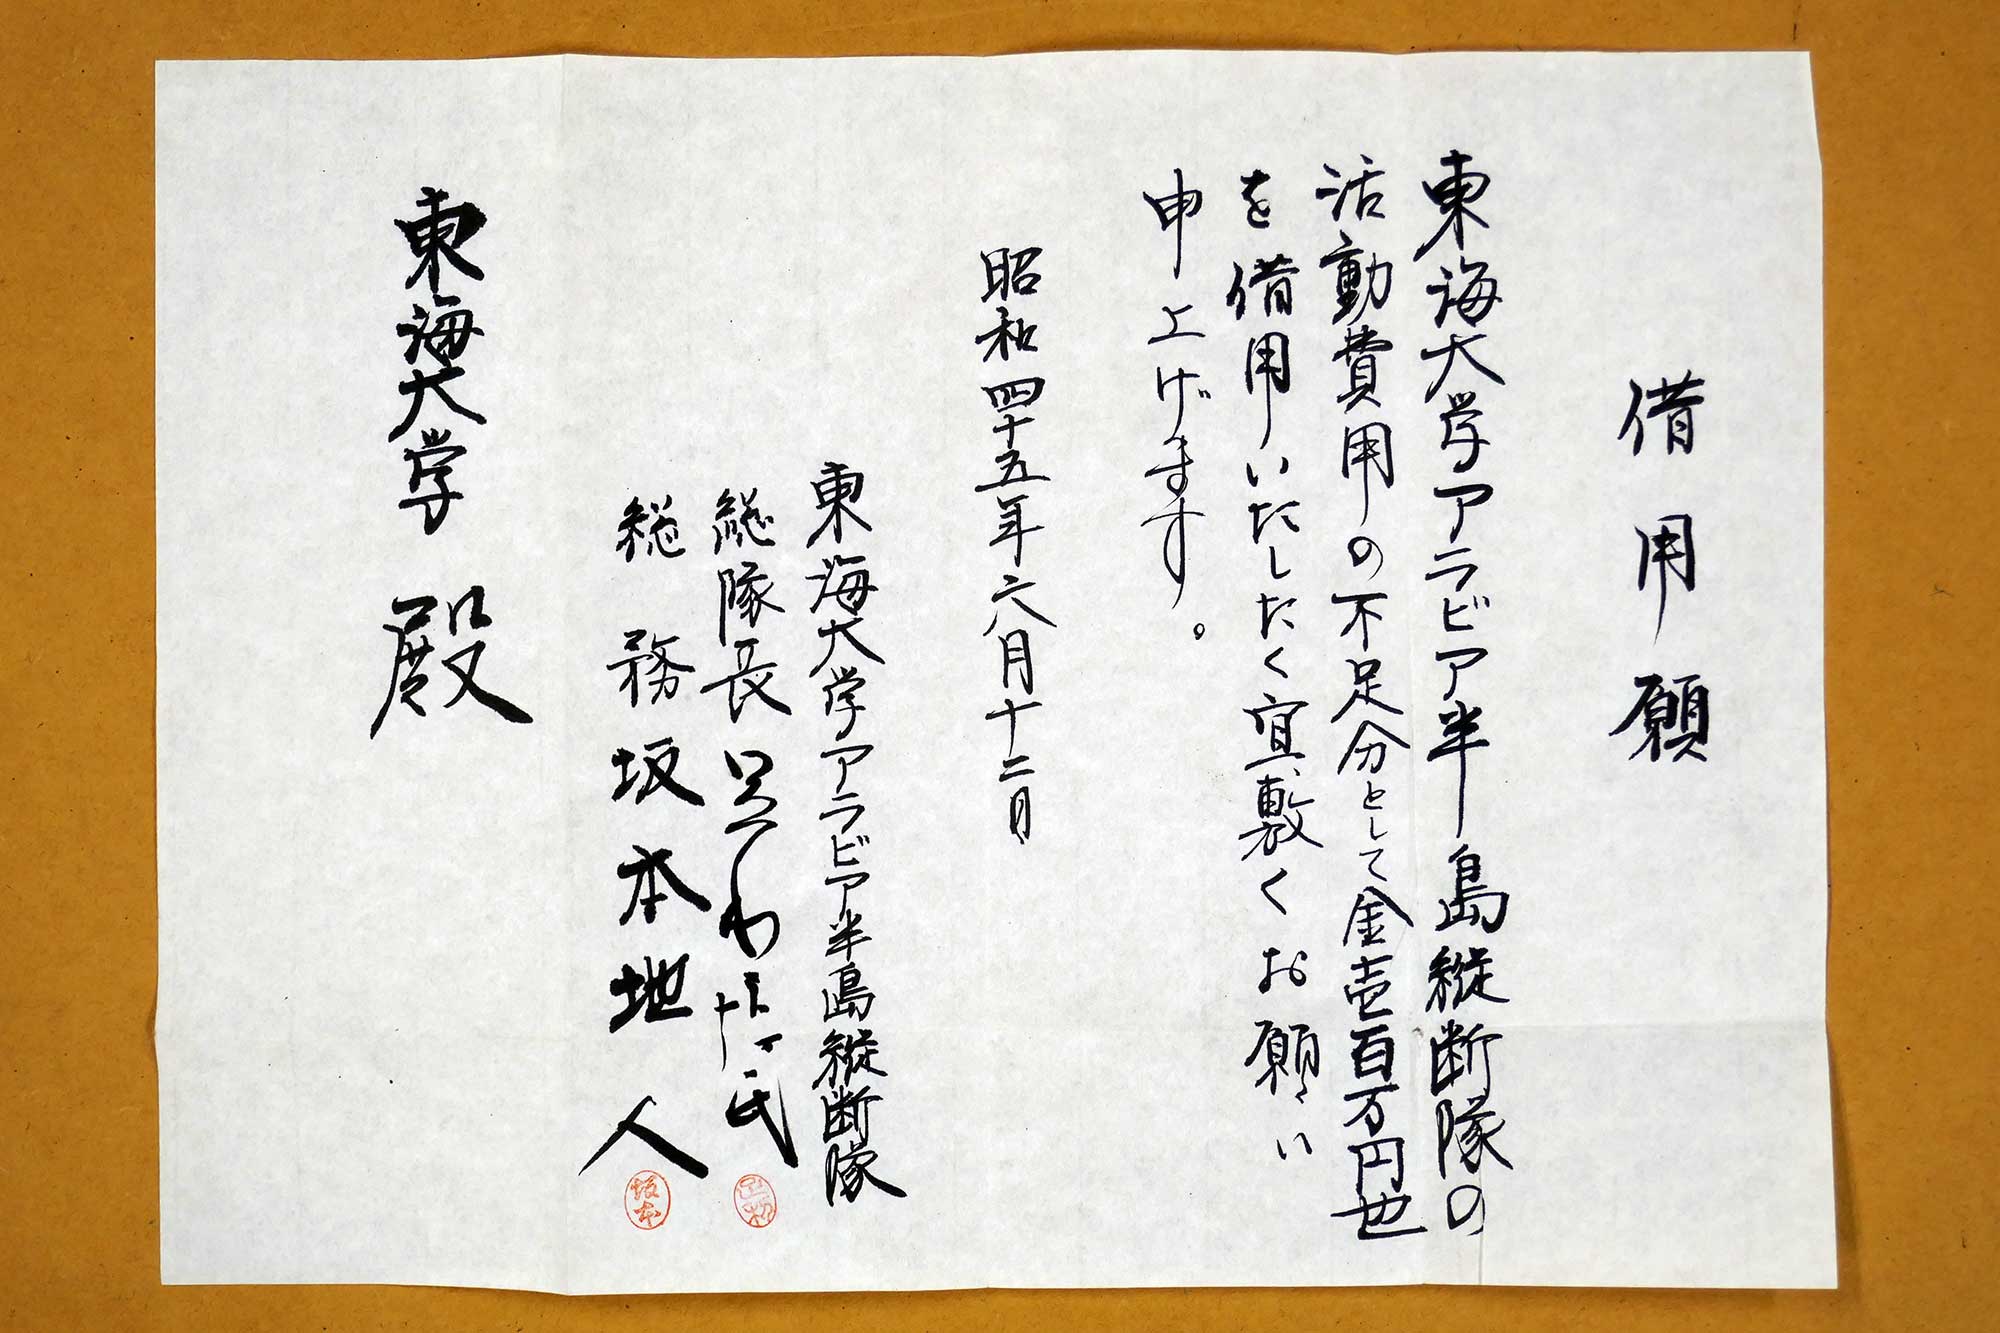 借用願
東海大学アラビア半島縦断隊の
活動費用の不足分として金壱百万円也
を借用いたしたく宜敷くお願い
申上げます。
昭和四十五年六月十二日
東海大学アラビア半島縦断隊
総隊長
総務 坂本地人
坂本
東海大学 殿